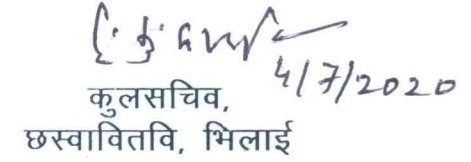 4/7/2020
कुलसचिव,
छस्वावितवि, भिलाई